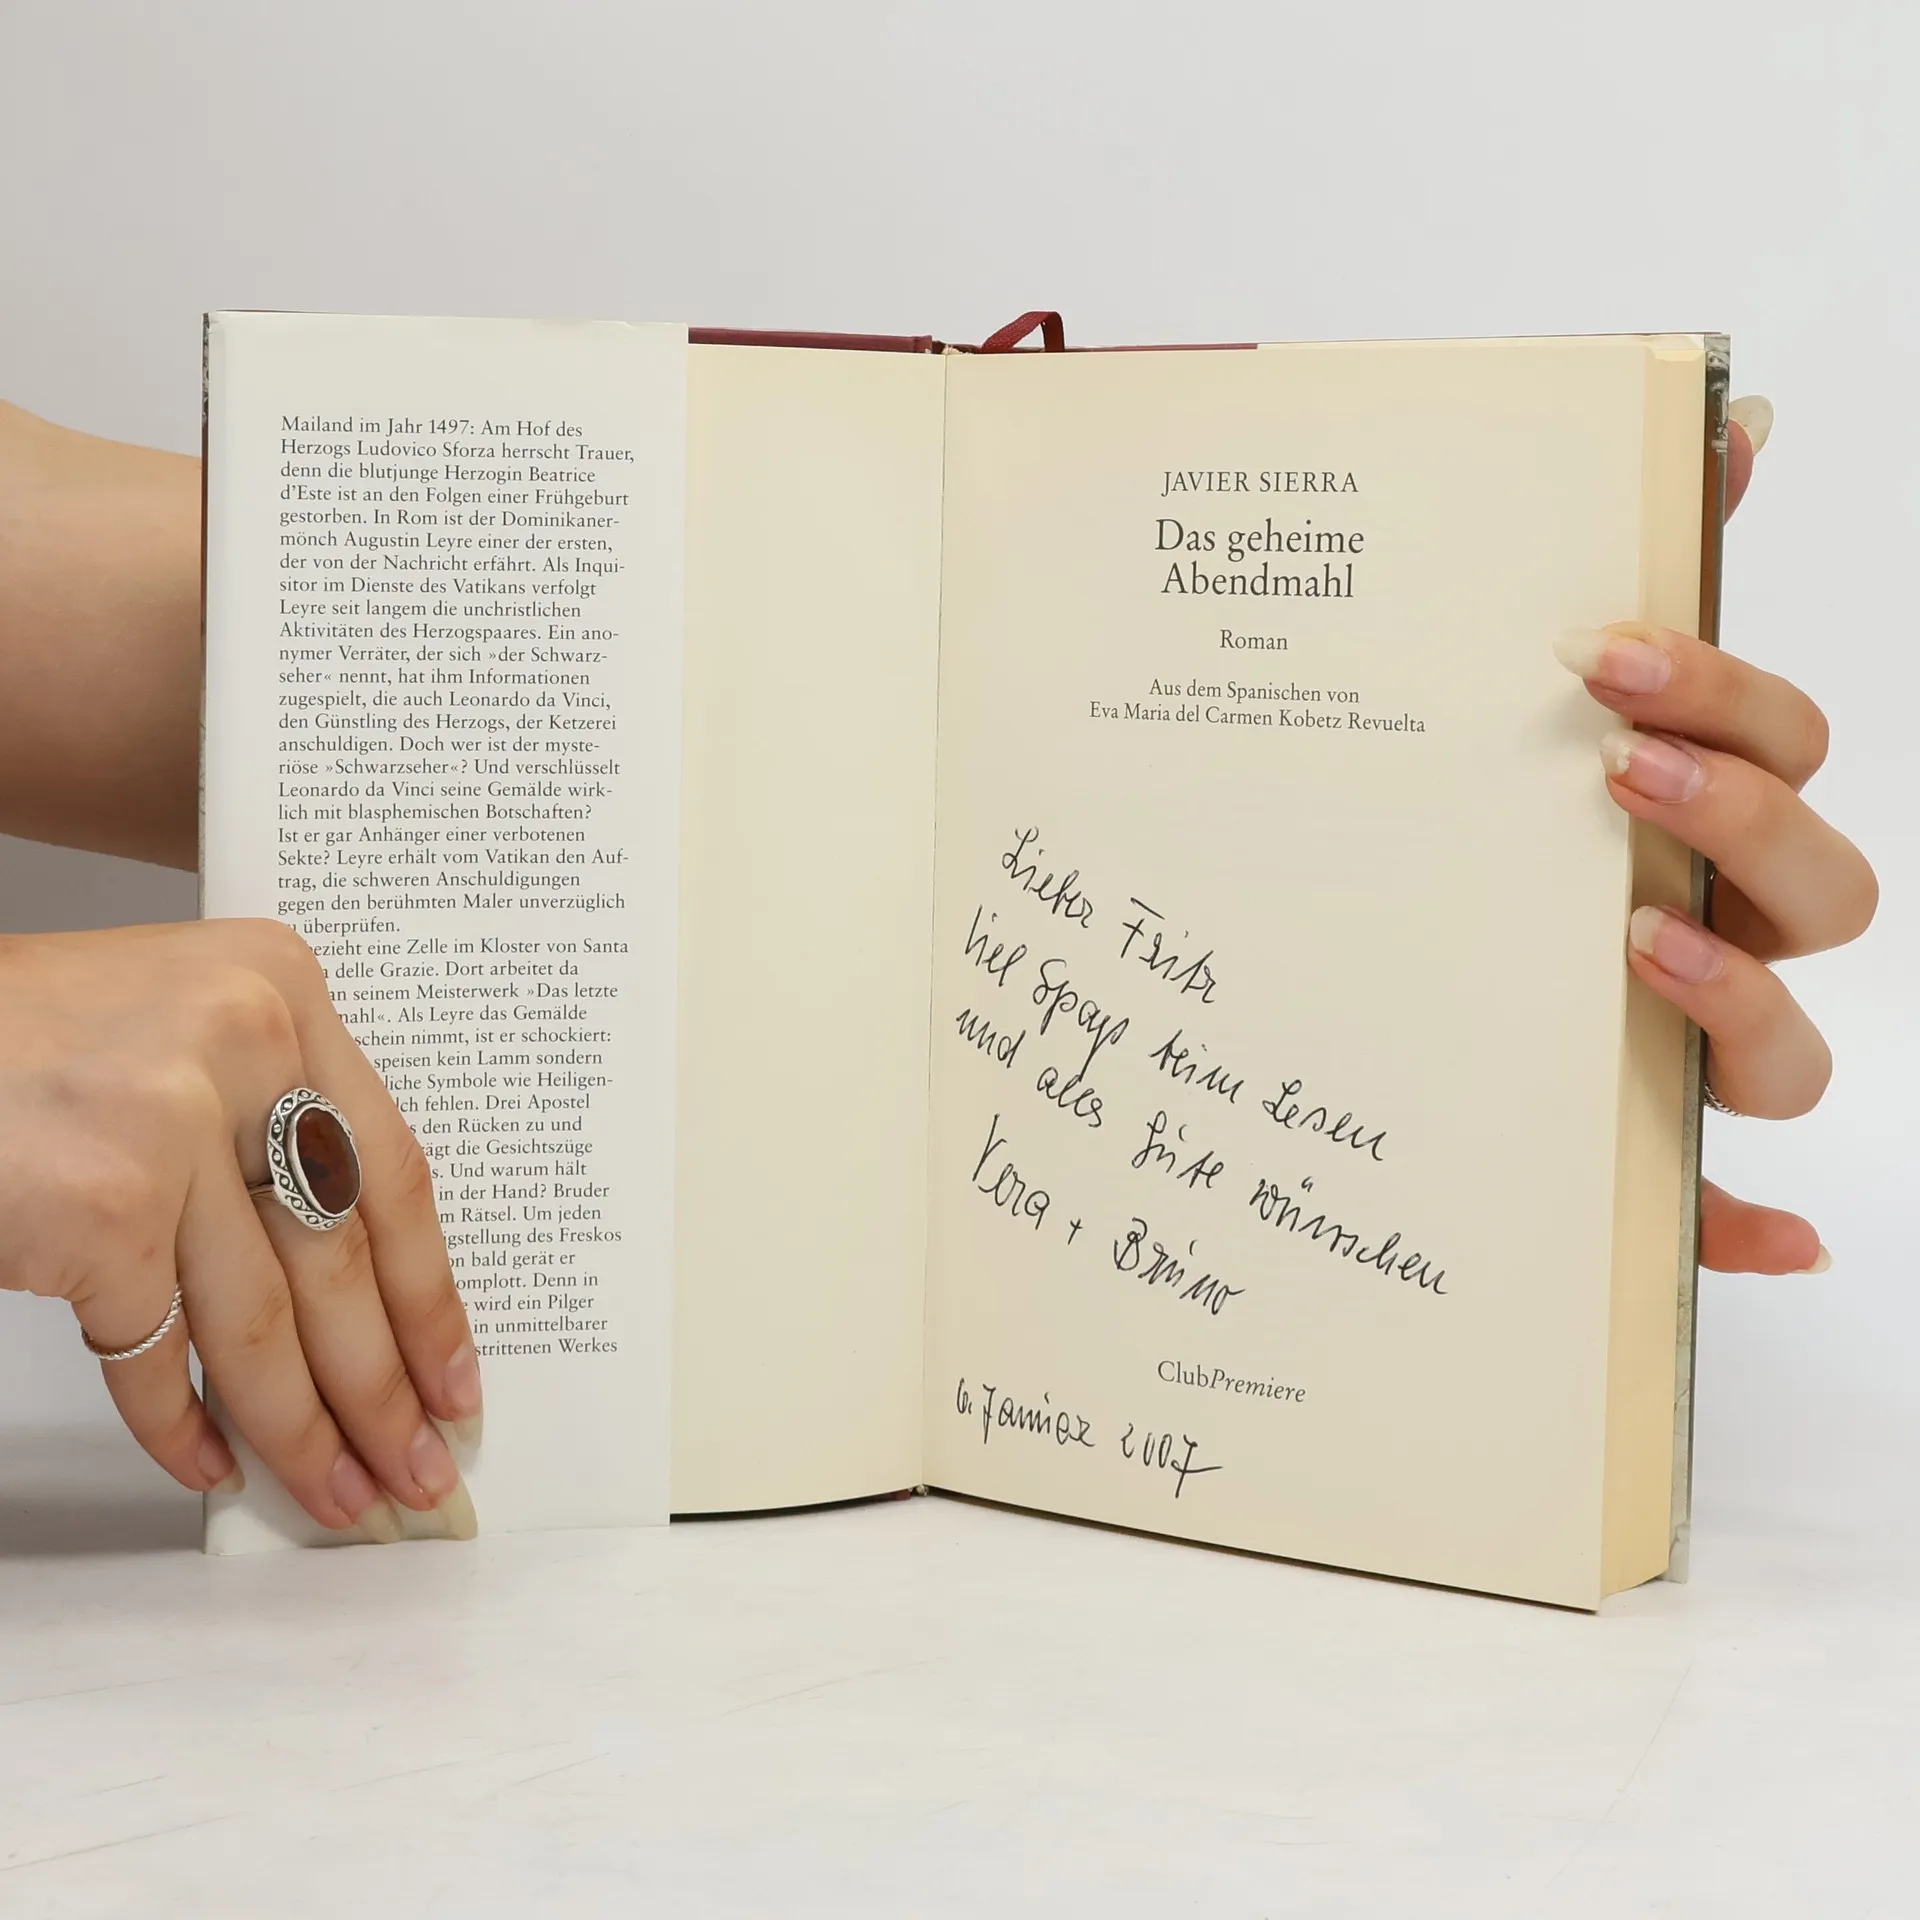 Mailand im Jahr 1497: Am Hof des
Herzogs Ludovico Sforza herrscht Trauer,
denn die blutjunge Herzogin Beatrice
d'Este ist an den Folgen einer Frühgeburt
gestorben. In Rom ist der Dominikaner-
mönch Augustin Leyre einer der ersten,
der von der Nachricht erfährt. Als Inqui-
sitor im Dienste des Vatikans verfolgt
Leyre seit langem die unchristlichen
Aktivitäten des Herzogspaares. Ein ano-
nymer Verräter, der sich »der Schwarz-
seher« nennt, hat ihm Informationen
zugespielt, die auch Leonardo da Vinci,
den Günstling des Herzogs, der Ketzerei
anschuldigen. Doch wer ist der myste-
riöse »Schwarzseher«? Und verschlüsselt
Leonardo da Vinci seine Gemälde wirk-
lich mit blasphemischen Botschaften?
Ist er gar Anhänger einer verbotenen
Sekte? Leyre erhält vom Vatikan den Auf-
trag, die schweren Anschuldigungen
gegen den berühmten Maler unverzüglich
überprüfen.
bezieht eine Zelle im Kloster von Santa
delle Grazie. Dort arbeitet da
an seinem Meisterwerk »Das letzte
mahl«. Als Leyre das Gemälde
schein nimmt, ist er schockiert:
speisen kein Lamm sondern
liche Symbole wie Heiligen-
lch fehlen. Drei Apostel
s den Rücken zu und
rägt die Gesichtszüge
s. Und warum hält
in der Hand? Bruder
m Rätsel. Um jeden
igstellung des Freskos
on bald gerät er
omplott. Denn in
wird ein Pilger
in unmittelbarer
strittenen Werkes
JAVIER SIERRA
Das geheime
Abendmahl
Roman
Aus dem Spanischen von
Eva Maria del Carmen Kobetz Revuelta
Lieber Fritz
viel Spaß beim Lesen
und alles Gute wünschen
Vera + Bruno
ClubPremiere
6. Januar 2007